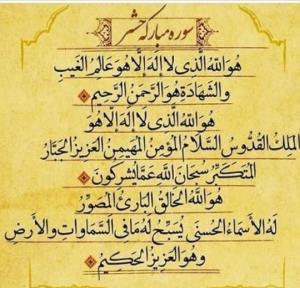 سوره مبارکه حشر
هُوَ اللهُ الَّذِی لا إِلهَ إِلّا هُوَ عَالِمُ الْغَیْبِ
وَالشَّهَادَةِ هُوَ الرَّحْمنُ الرَّحِیمُ
هُوَ اللهُ الَّذِی لا إِلهَ إِلّا هُوَ
المَلِکُ القُدُّوسُ السَّلامُ المُؤْمِنُ المُهَیْمِنُ العَزِیزُ الجَبَّارُ
المُتَکَبِّرُ سُبْحَانَ اللهِ عَمَّا یُشْرِکُونَ
هُوَ اللهُ الْخَالِقُ البَارِئُ المُصَوِّرُ
لَهُ الأَسْمَاءُ الْحُسْنَی یُسَبِّحُ لَهُ مَا فِی السَّمَاوَاتِ وَالأَرْضِ
وَهُوَ العَزِیزُ الحَکِیمُ